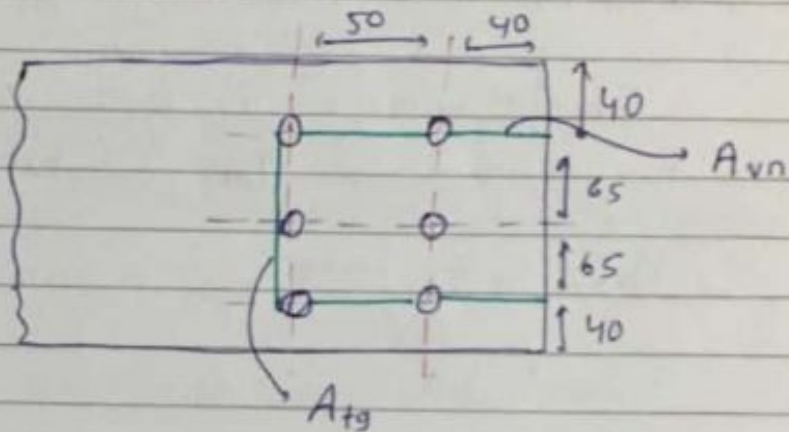 50 40
40
Avn
65
65
40
Atg